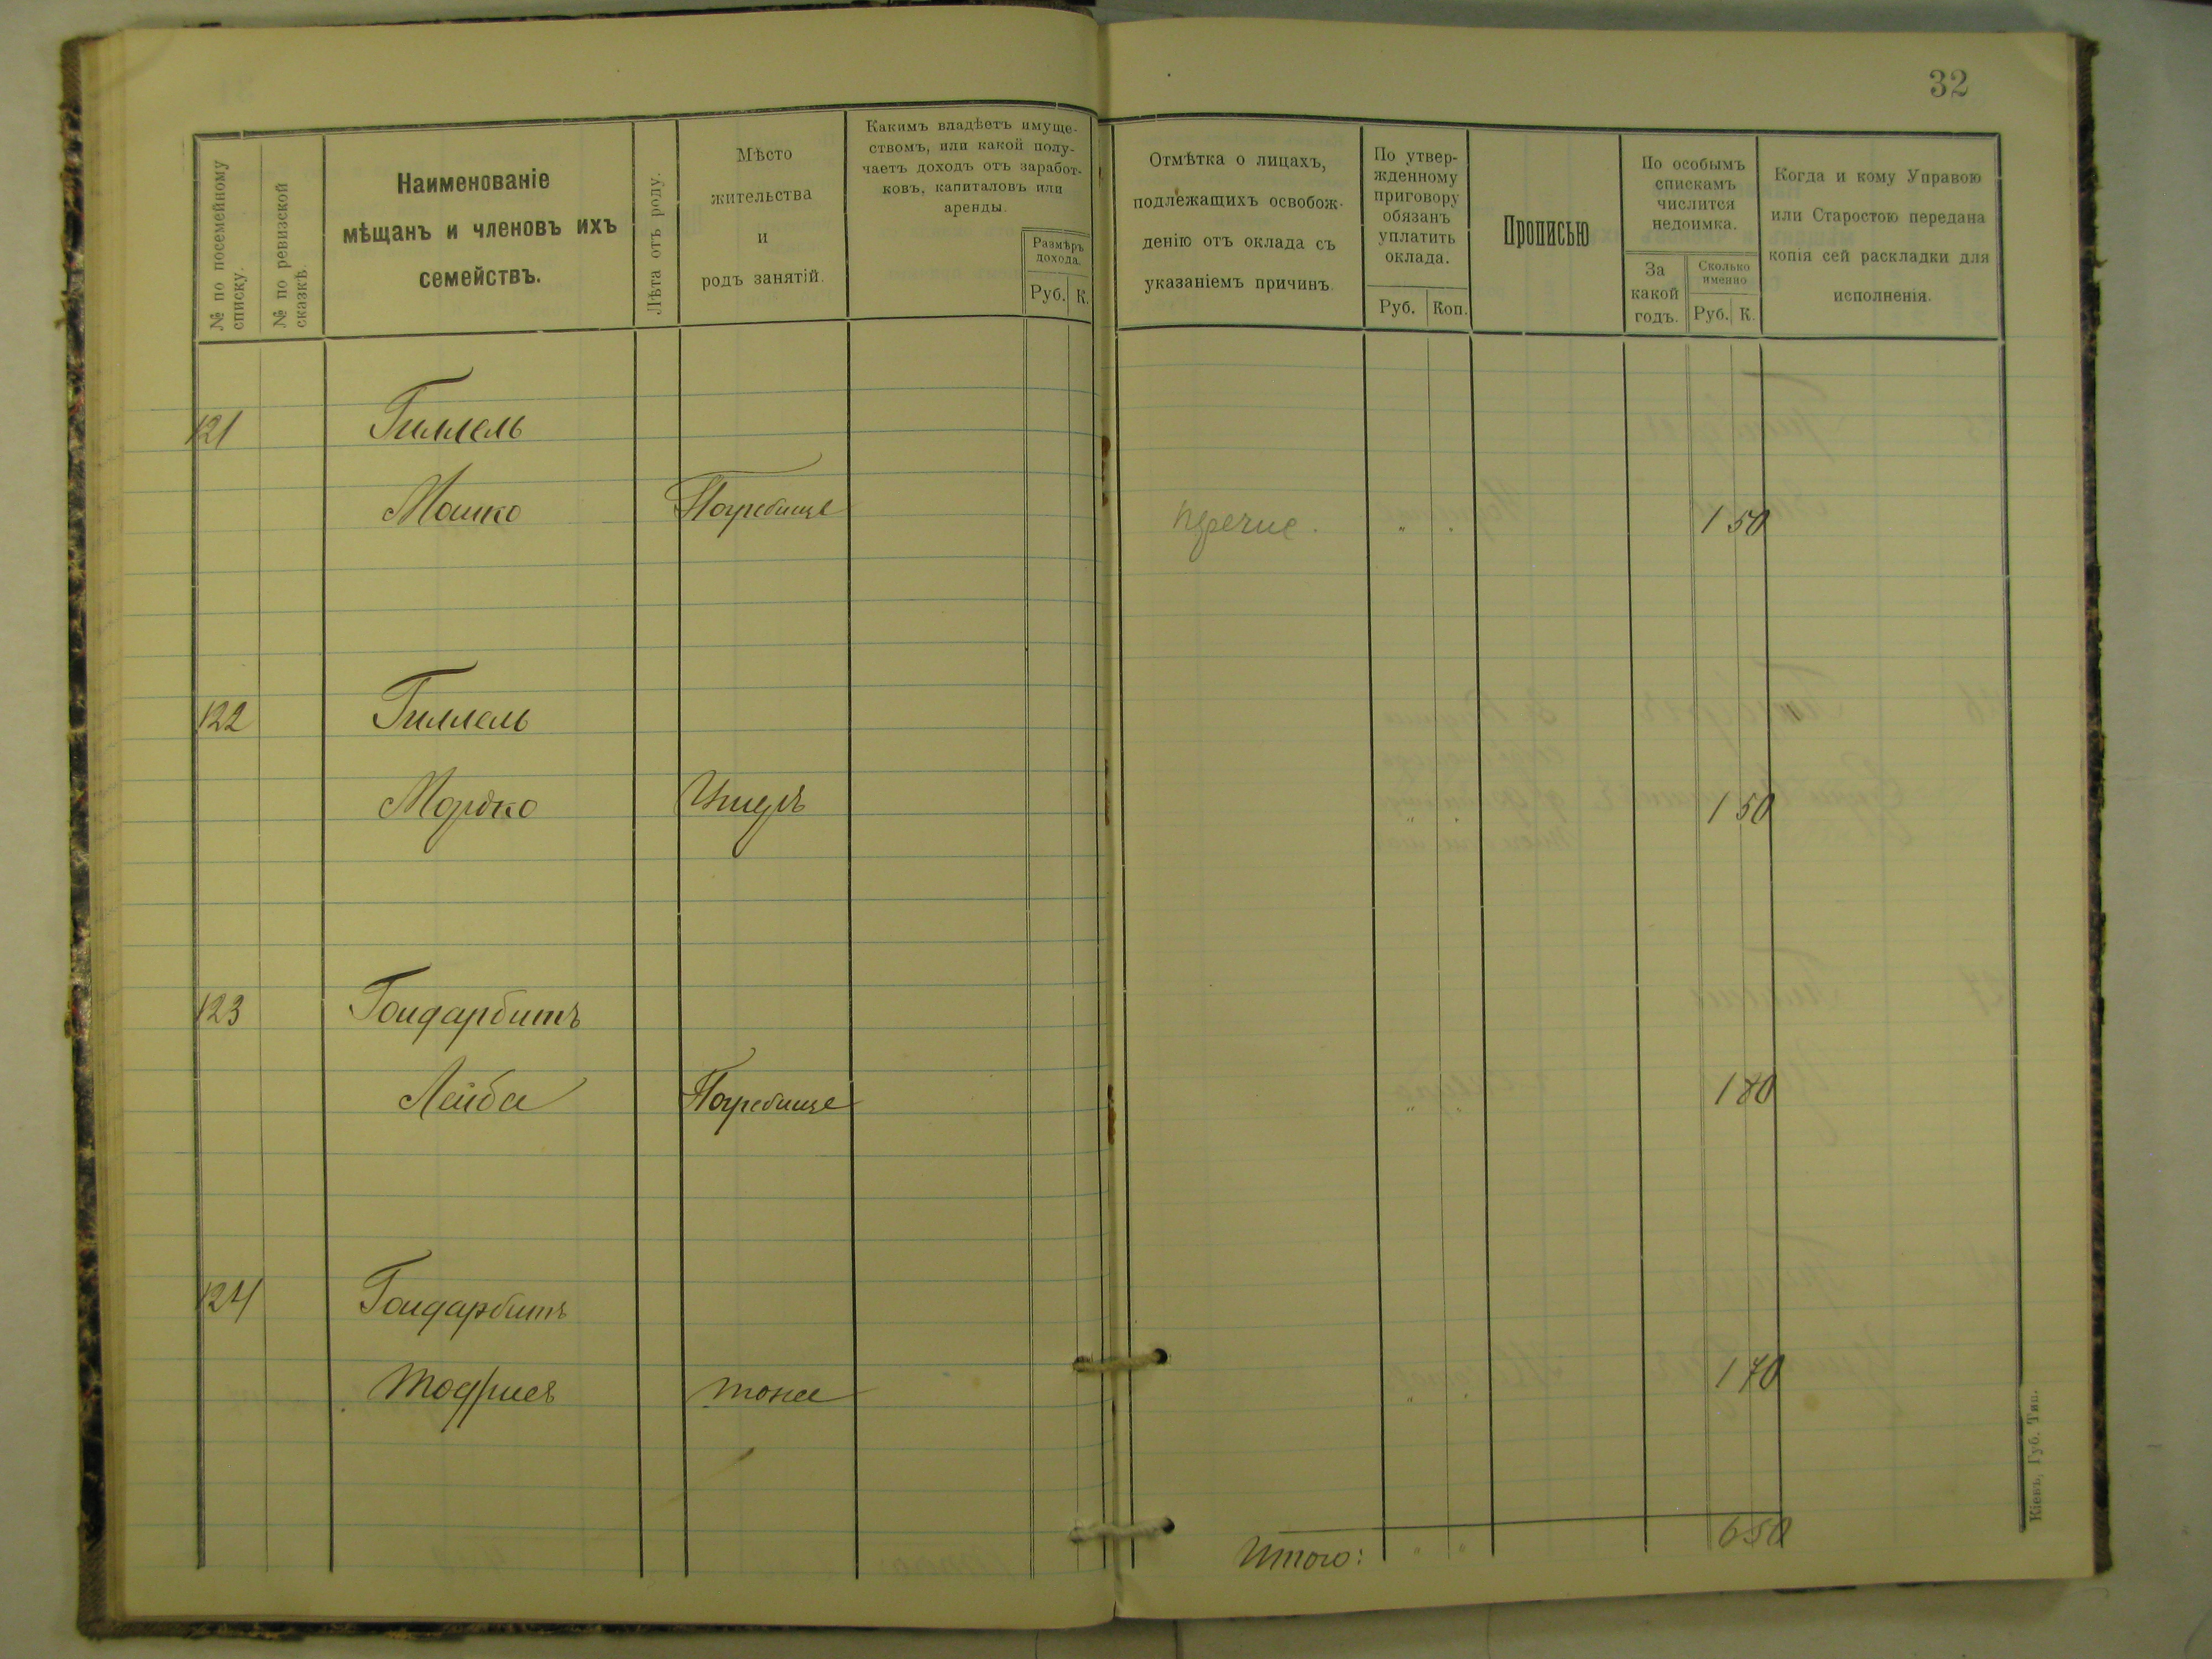 32
№ по посемейному списку.
№ по ревизской сказкѣ.
Наименованіе
мѣщанъ и членовъ ихъ
семействъ.
Лѣта отъ роду.
Мѣсто
жительства
и
родъ занятій.
Какимъ владѣетъ имуще-
ствомъ, или какой полу-
чаетъ доходъ отъ заработ-
ковъ, капиталовъ или
аренды.
Размѣръ
дохода.
Руб. К.
Отмѣтка о лицахъ,
подлежащихъ освобож-
денію отъ оклада съ
указаніемъ причинъ.
По утвер-
жденному
приговору
обязанъ
уплатить
оклада.
Руб. Коп.
Прописью
По особымъ
спискамъ
числится
недоимка.
За
какой
годъ.
Сколько
именно
Руб. К.
Когда и кому Управою
или Старостою передана
копія сей раскладки для
исполненія.
121 Гиллель
Мошко Погребище перечис. " " 1 50
122 Гиллель
Мордко " " 1 50
123 Гондарбитъ
Лейба Погребище " " 1 80
124 Гондарбитъ
Тодрисъ тоже " " 1 70
Итого: " " 6 50
Кіевъ, Губ. Тип.